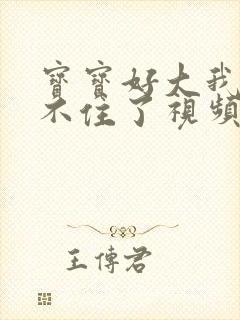 寶寶好大我
不住了視頻
王傳君